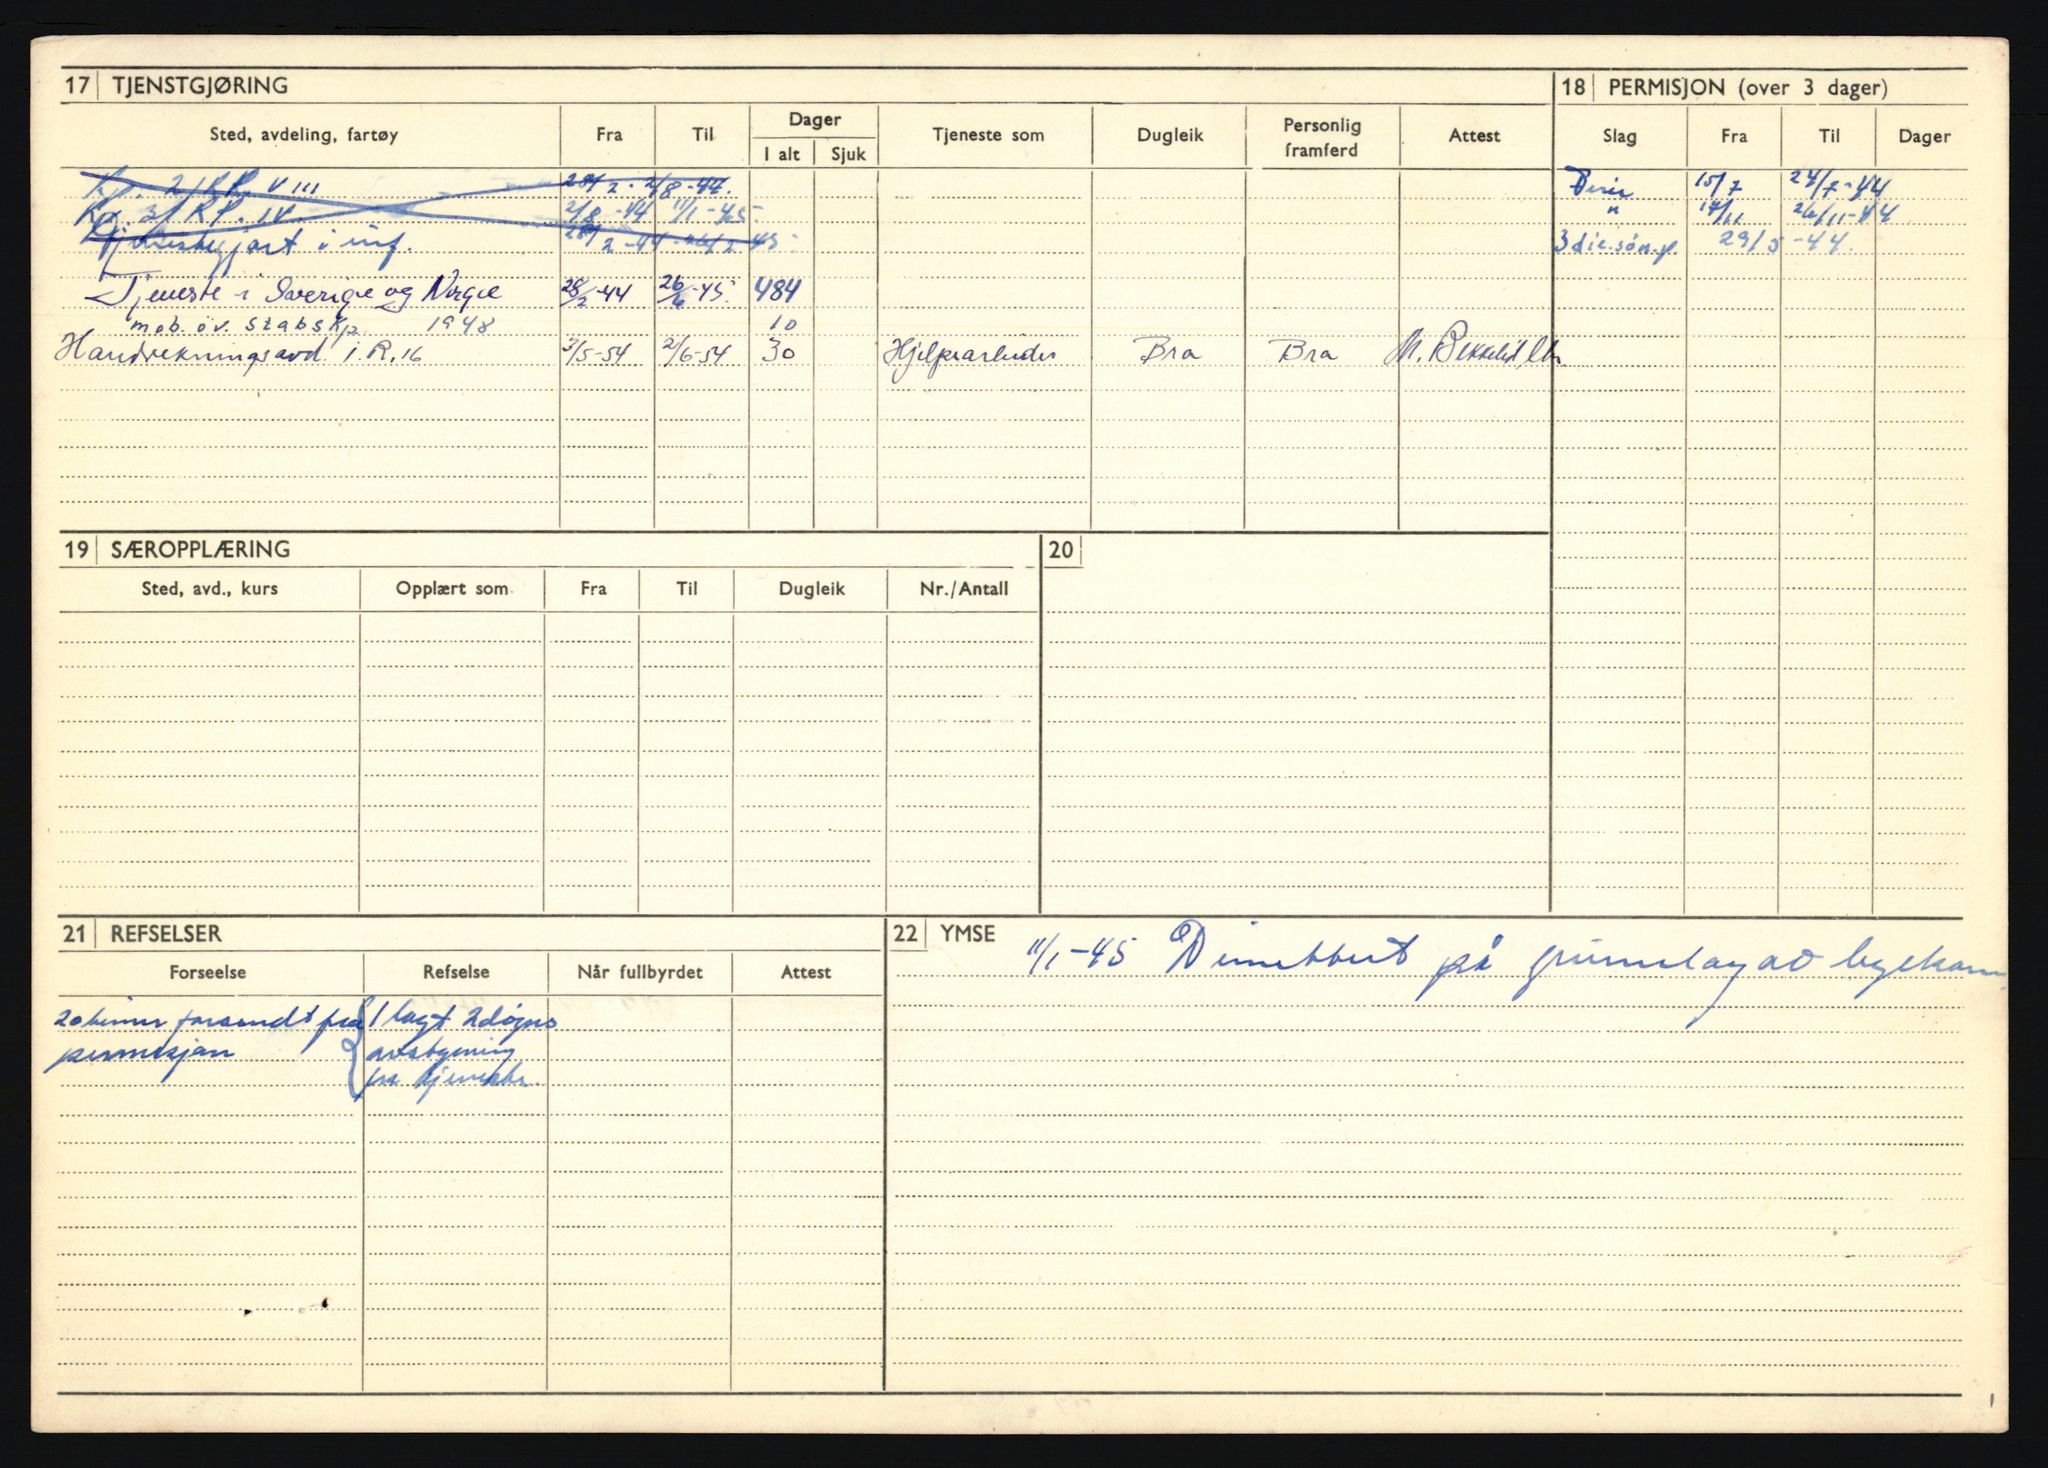 17 TJENSTGJØRING
Sted, avdeling, fartøy Fra Til Dager I alt Sjuk Tjeneste som Dugleik Personlig framferd Attest
Kp. 2/R.P. VIII 28/2 - 2/8-44.
Kp. 3/R.P. IV. 2/8-44 11/1-45
Tjenestegjort i inf. 28/2-44 - 26/2 45
Tjeneste i Sverige og Norge 28/2-44 26/6-45 484
mob. öv. stabskp. 1948 10
Handrekningsavd. I.R.16 3/5-54 2/6-54 30 Hjelpearbeider Bra Bra
18 PERMISJON (over 3 dager)
Slag Fra Til Dager
15/7 24/7-44
" 17/11 26/11-44
29/5-44.
19 SÆROPPLÆRING
Sted, avd., kurs Opplært som Fra Til Dugleik Nr./Antall
20
21 REFSELSER
Forseelse Refselse Når fullbyrdet Attest
20 timer forsendt fra 1 lagt 2 døgns
permisjon
fra tjeneste.
22 YMSE
11/1-45 Dimittert på grunnlag av